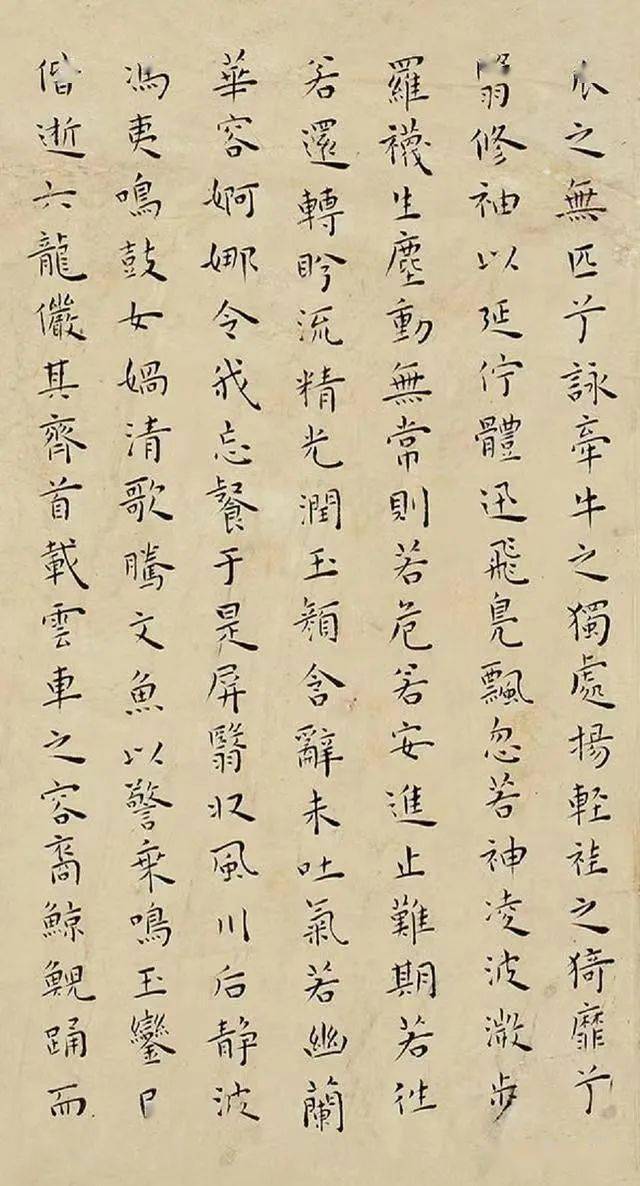 瓜之無匹兮詠牽牛之獨處揚軽袿之猗靡兮
翳修袖以延佇體迅飛鳧飄忽若神凌波微步
羅襪生塵動無常則若危若安進止難期若往
若還轉盼流精光潤玉顏含辭未吐氣若幽蘭
華容婀娜令我忘餐于是屏翳收風川后静波
馮夷鳴鼓女媧清歌騰文魚以警乘鳴玉鑾
偕逝六龍儼其齊首載雲車之容裔鯨鯢踊而